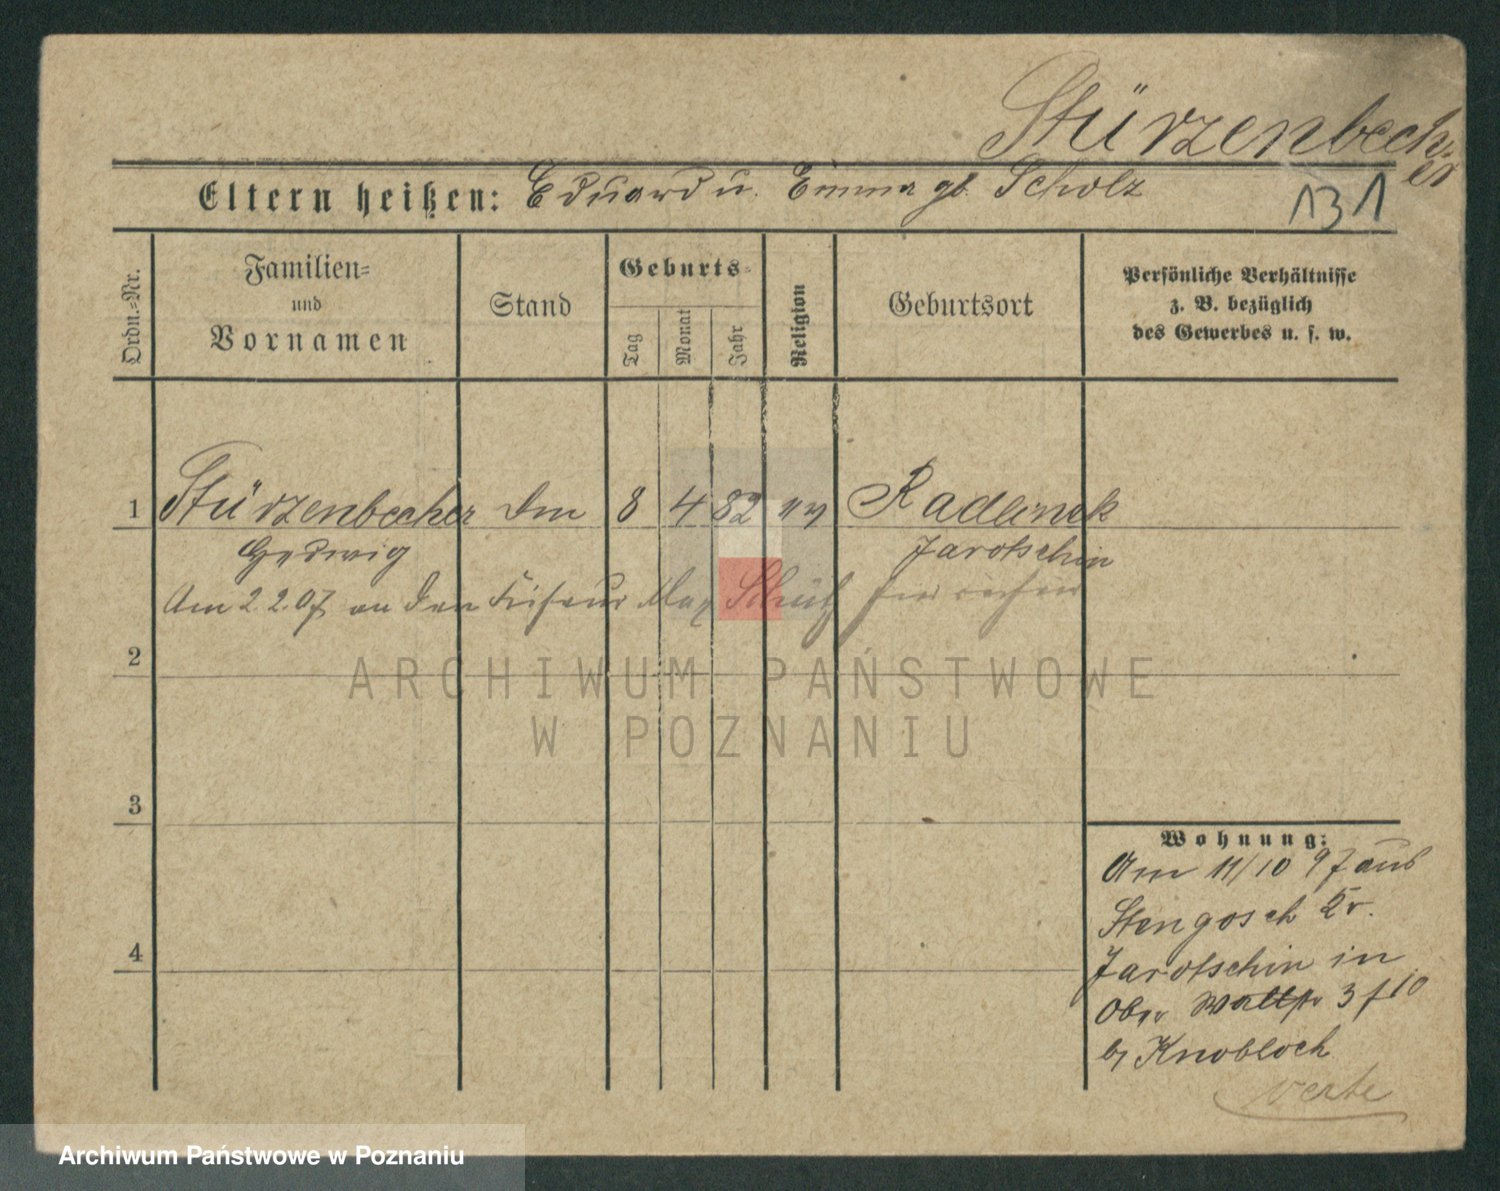 Stürzenbech-
er
Eltern heißen: Eduard u. Emma gb. Scholz
131
Ordn.-Nr.
Familien-
und
Vornamen
Stand
Geburts-
Tag
Monat
Jahr
Religion
Geburtsort
Persönliche Verhältnisse
z. B. bezüglich
des Gewerbes u. s. w.
1 Stürzenbecher 8 4 82 ev Radlinek
Hedwig Jarotschin
Am 2 2. 07 an den Friseur Max
2
ARCHIWUM PAŃSTWOWE
W POZNANIU
3
4
Wohnung:
Am 11/10 97 aus
Stengosch Kr.
Jarotschin in
Ober Wallstr 3
b/ Knobloch
verte
Archiwum Państwowe w Poznaniu